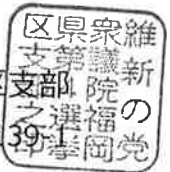 維新の党
衆議院福岡
県第4選挙
区支部之印
区支部
39-1